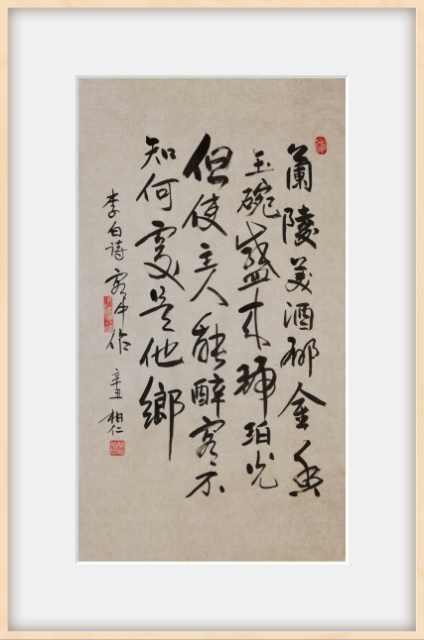 蘭陵美酒郁金香
玉碗盛来琥珀光
但使主人能醉客不
知何處是他鄉
李白诗客中作 辛丑 柏仁